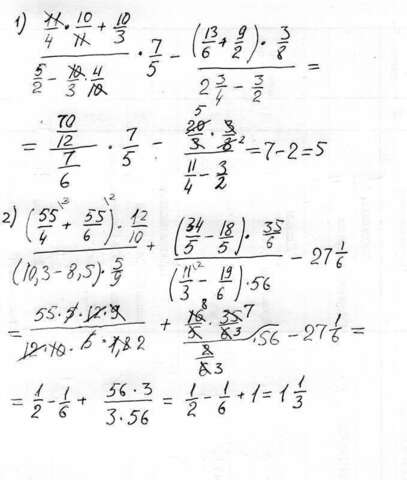 1) (11/4 · 10/11 + 10/3) / (5/2 − 10/3 · 4/10) · 7/5 − ((13/6 + 9/2) · 3/8) / (2 3/4 − 3/2) =
= (70/12) / (7/6) · 7/5 − (20/3 · 3/8) / (11/4 − 3/2) = 7 − 2 = 5
2) ((55/4 + 55/6) · 12/10) / ((10,3 − 8,5) · 5/9) + ((34/5 − 18/5) · 35/6) / ((11/3 − 19/6) · 56) − 27 1/6
= 56 · 3 / 3 · 56
= 1/2 − 1/6 + (56 · 3) / (3 · 56) = 1/2 − 1/6 + 1 = 1 1/3